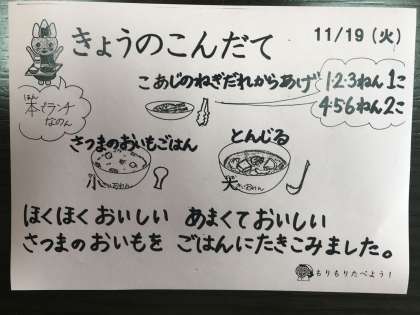 きょうのこんだて
11/19（火）
こあじのねぎだれからあげ
1・2・3ねん1こ
4・5・6ねん2こ
ほん
本でランチ
なのん
さつまのおいもごはん
とんじる
小
大
ほくほくおいしい あまくておいしい
さつまのおいもを ごはんにたきこみました。
もりもりたべよう！